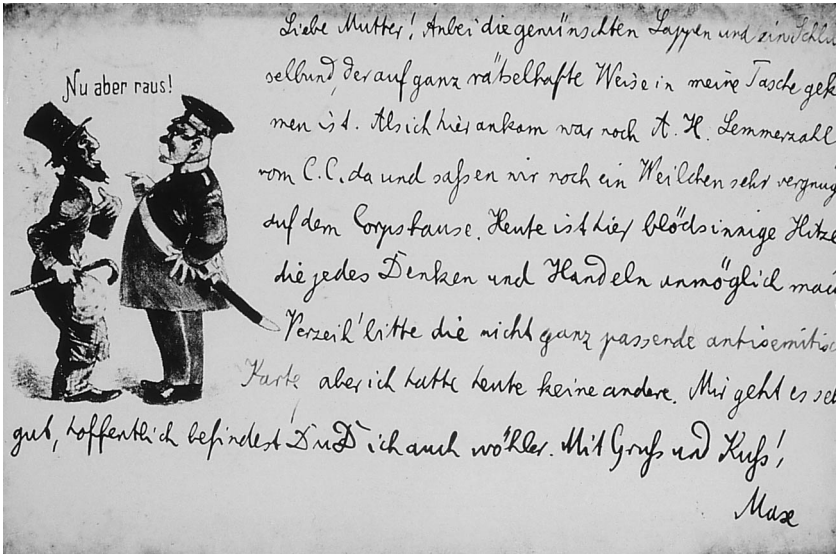 Nu aber raus!
Liebe Mutter! Anbei die gewünschten Lappen und ein Schlü
selbund, der auf ganz rätselhafte Weise in meine Tasche gek
men ist. Als ich hier ankam war noch A. H. Lemmerzahl
vom C. C. da und saßen wir noch ein Weilchen sehr vergnüg
auf dem Corpshause. Heute ist hier blödsinnige Hitze
die jedes Denken und Handeln unmöglich mac
Verzeih' bitte die nicht ganz passende antisemitisc
Karte aber ich hatte heute keine andere. Mir geht es seh
gut, hoffentlich befindest Du Dich auch wohler. Mit Gruß und Kuß!
Max